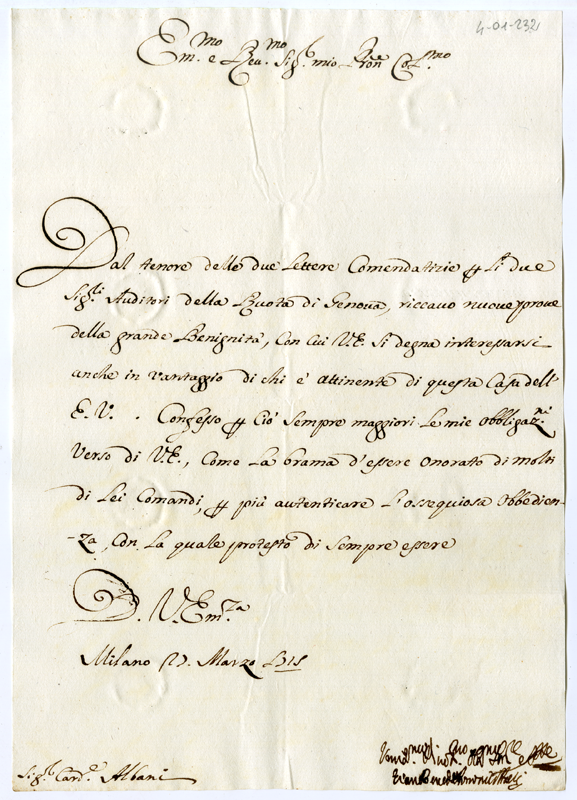 4-01-232
Em.mo e Rev.mo Sig.r mio Pron Col.mo
Dal tenore delle due Lettere Comendatizie ꝑ li due
Sig.ri Auditori della Ruota di Genova, riccavo nuove prove
della grande Benignità, Con Cui V.E. Si degna interessarsi
anche in vantaggio di chi è attinente di questa Casa dell'
E.V. . Confesso ꝑ Ciò Sempre maggiori Le mie obbligaz.ni
Verso di V.E., Come La brama d'essere onorato di molti
di Lei Comandi, ꝑ più autenticare L'ossequiosa obbedien-
-za, Con La quale protesto di Sempre essere
D. V. Em.za
Milano Marzo
Sig.r Card.e Albani